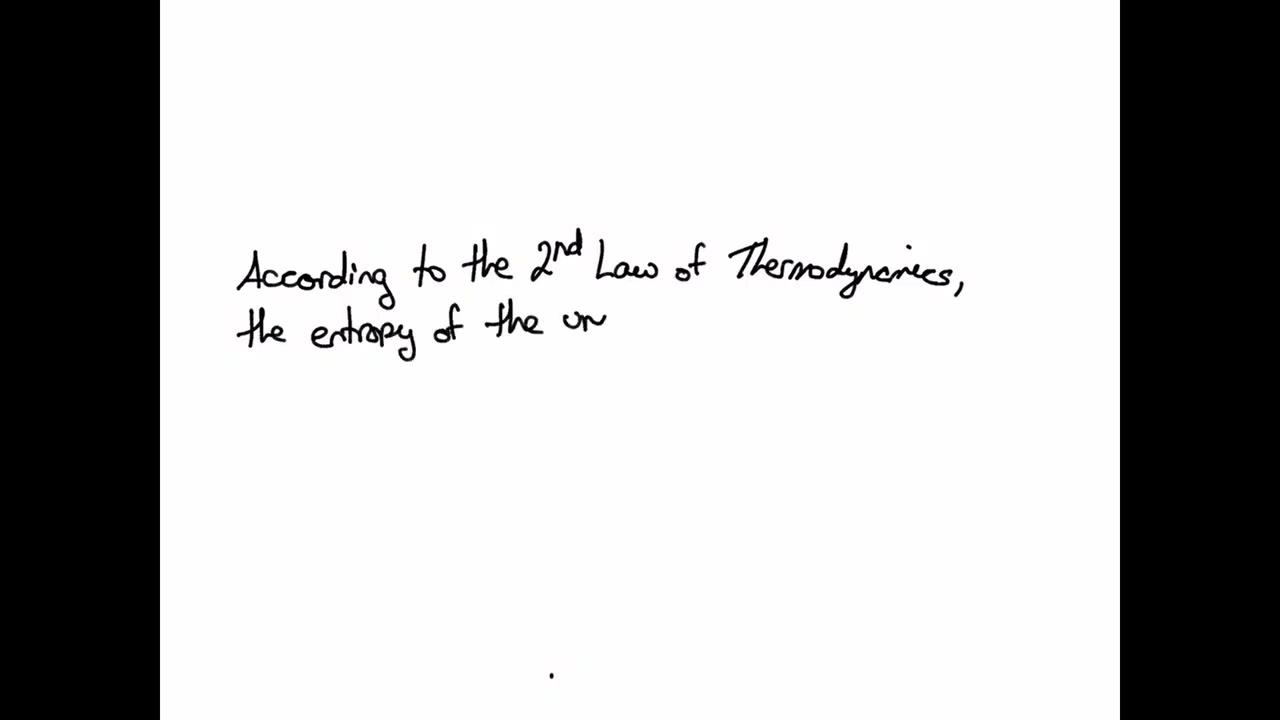 According to the 2nd Law of Thermodynamics,
the entropy of the un